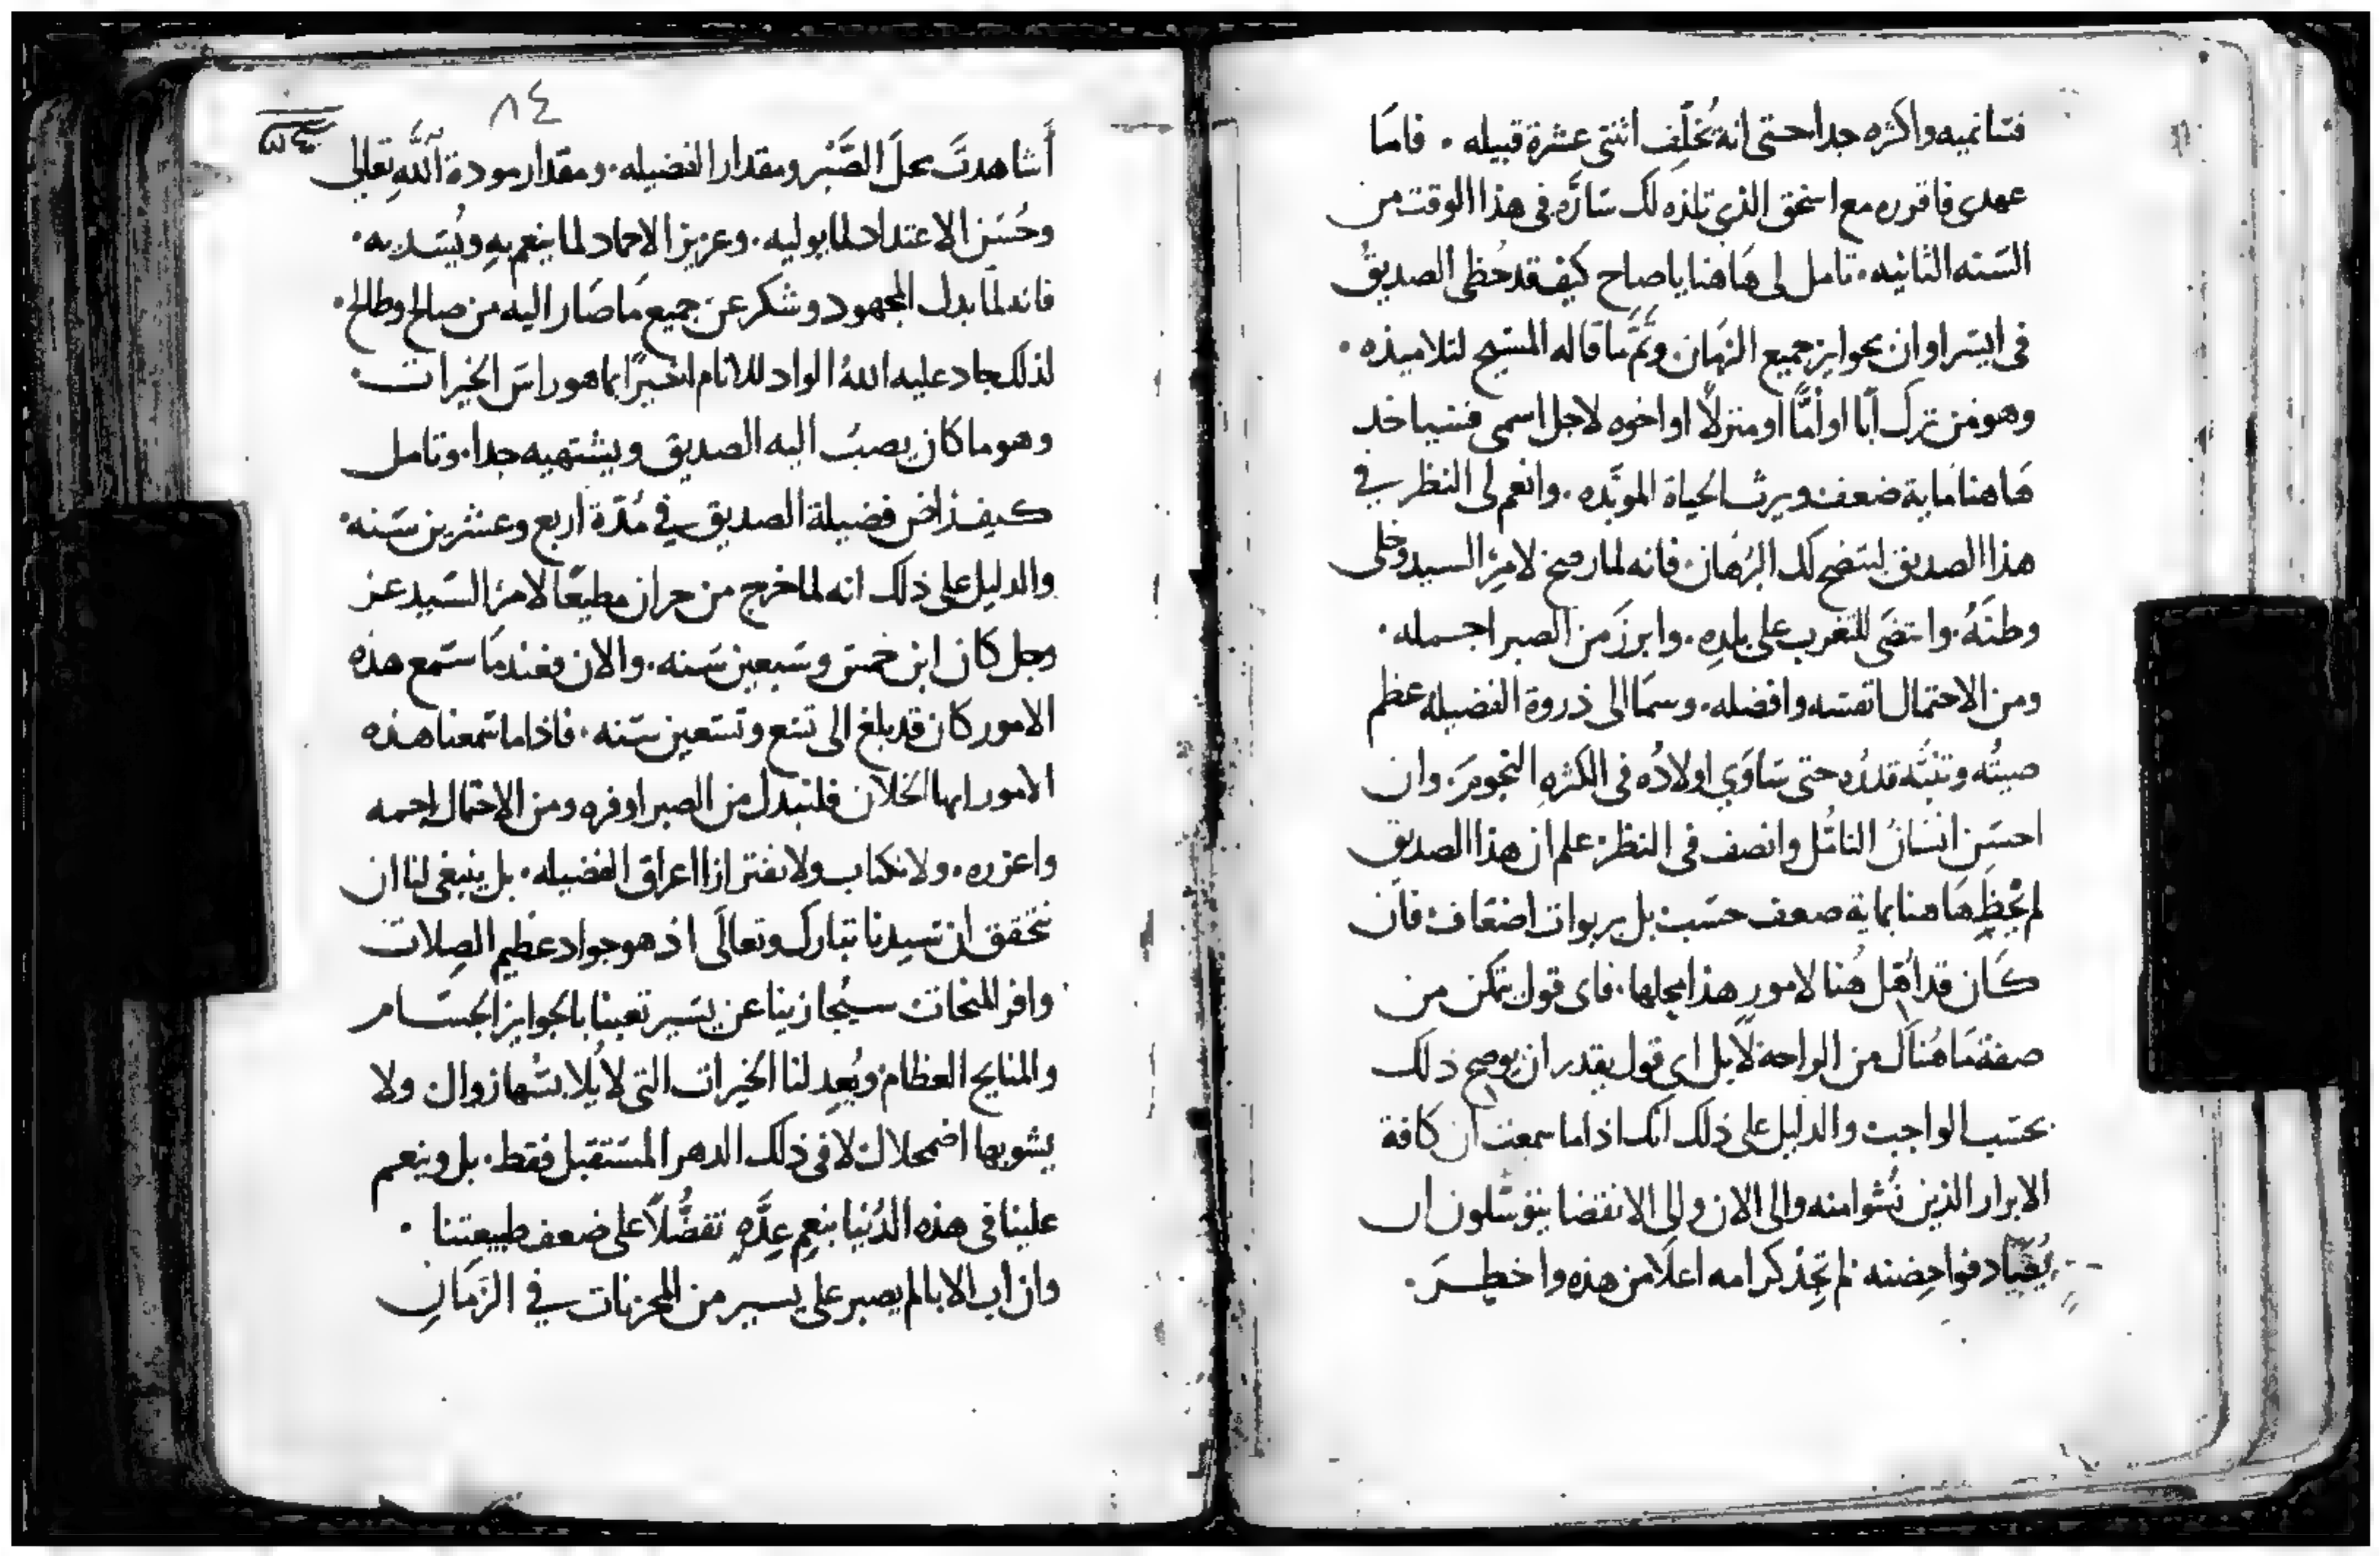 فسانميه واكثره جدا حتى انه يُخلِف اثنتى عشرة قبيله ٠ فامَا
عهدى فاقرره مع اسحق الذى تلده لك سَارَّه فى هذا الوقت من
السَنه الثانيه ٠ تامل لى هَاهنا ياصاح كيف قد حُظى الصديقُ
فى ايسَر اوان بجوايز جميع الزمَان وتَمَّ مَا قاله المسَيح لتلاميذه ٠
وهو من ترك اَبًا او اُمًّا او منزلًا او اخوه لاجل اسمى فسَياخد
هَاهنا ماية ضعف ويرث الحياة الموبَّده ٠ وانعم لى النظر في
هذا الصديق ليتضح لك البُرهَان فانه لما رضخ لامرِ السيد وخلى
وطنَهُ وانتضَى للتغرب على بلدِه ٠ وابرزَ من الصبر اجمله ٠
ومن الاحتمال انفسَه وافضله ٠ وسمَا الى ذروة الفضيله عظم
صيتُه وتنبَّه قدرُه حتى سَاوَي اولادُه فى الكثرهِ النجومَ ٠ وان
احسَن انسَانُ التامُل وانصف فى النظر علم ان هذا الصديق
لم يُحْظَ هَاهنا بماية ضعف حسَب بل بربوات اضعَاف فان
كَان قد اُهِّل هُنا لامورٍ هذا محلها ٠ فاى قول يتمكن من
صفة مَا هُنَاك من الراحه لا بل اي قول يقدر ان يوضح ذلك
بحسَب الواجب والدليل على ذلك انك اذا ما سمعت ان كافة
الابرار الذين نُشوا منه والى الان والى الانقضا يتوسَلون ان
فى احضنه لم تجِد كرامه اعلا من هذه واخطـرَ ٠
٨٤
أشاهدتَ محلَ الصَّبْر ومقدار الفضيله ٠ ومقدار مودة اللَّهِ تعالى
وحُسَن الاعتداد لما يوليه ٠ وعزيز الاحماد لما ينعم بهِ ويُسَديه ٠
فانه لمّا بدل المجهود وشكر عن جميع مَا صَار اليه من صالح وطالح ٠
لذلك جاد عليه اللهُ الواد للانام اخيرًا بما هو راسَ الخيرات
وهو ما كان يصبُ اليه الصديق ويشتهيه جدا ٠ وتامل
كيف ذاخر فضيلة الصديق في مُدّة اربع وعشرين سَنه ٠
والدليل على ذلك انه لما خرج من حران مطيعًا لامر السَيد عز
وجل كَان ابن خمسَ وسَبعين سَنه ٠ والان فعندمَا سَمع هذه
الامور كان قد بلغ الى تسَع وتسَعين سَنه ٠ فاذا ما سَمعنا هذه
الامور ايها الخلان فلنبدل من الصبر اوفره ومن الاحتمال اجمه
واعزره ٠ ولا نكتاب ولا نفتر اذا اعراق الفضيله ٠ بل ينبغى لنا ان
نتحقق ان سَيدنا تبارك وتعالَى اذ هو جواد عظيم الصِلات
وافر المنحات سيُجازينا عن يسَير تعبنا بالجوايز الجسَـام
والمنايح العظام ويُعِد لنا الخيرات التى لا يُلابسُها زوال ولا
يشوبها اضمحلال لا فى ذلك الدهر المسَتقبل فقط ٠ بل وينعم
علينا فى هذه الدُنيا بنعمٍ عِدَّهٍ تفضُّلًا على ضعف طبيعتنا ٠
وان اَب الابا لم يصبر على يسير من المحزنات في الزمَانِ